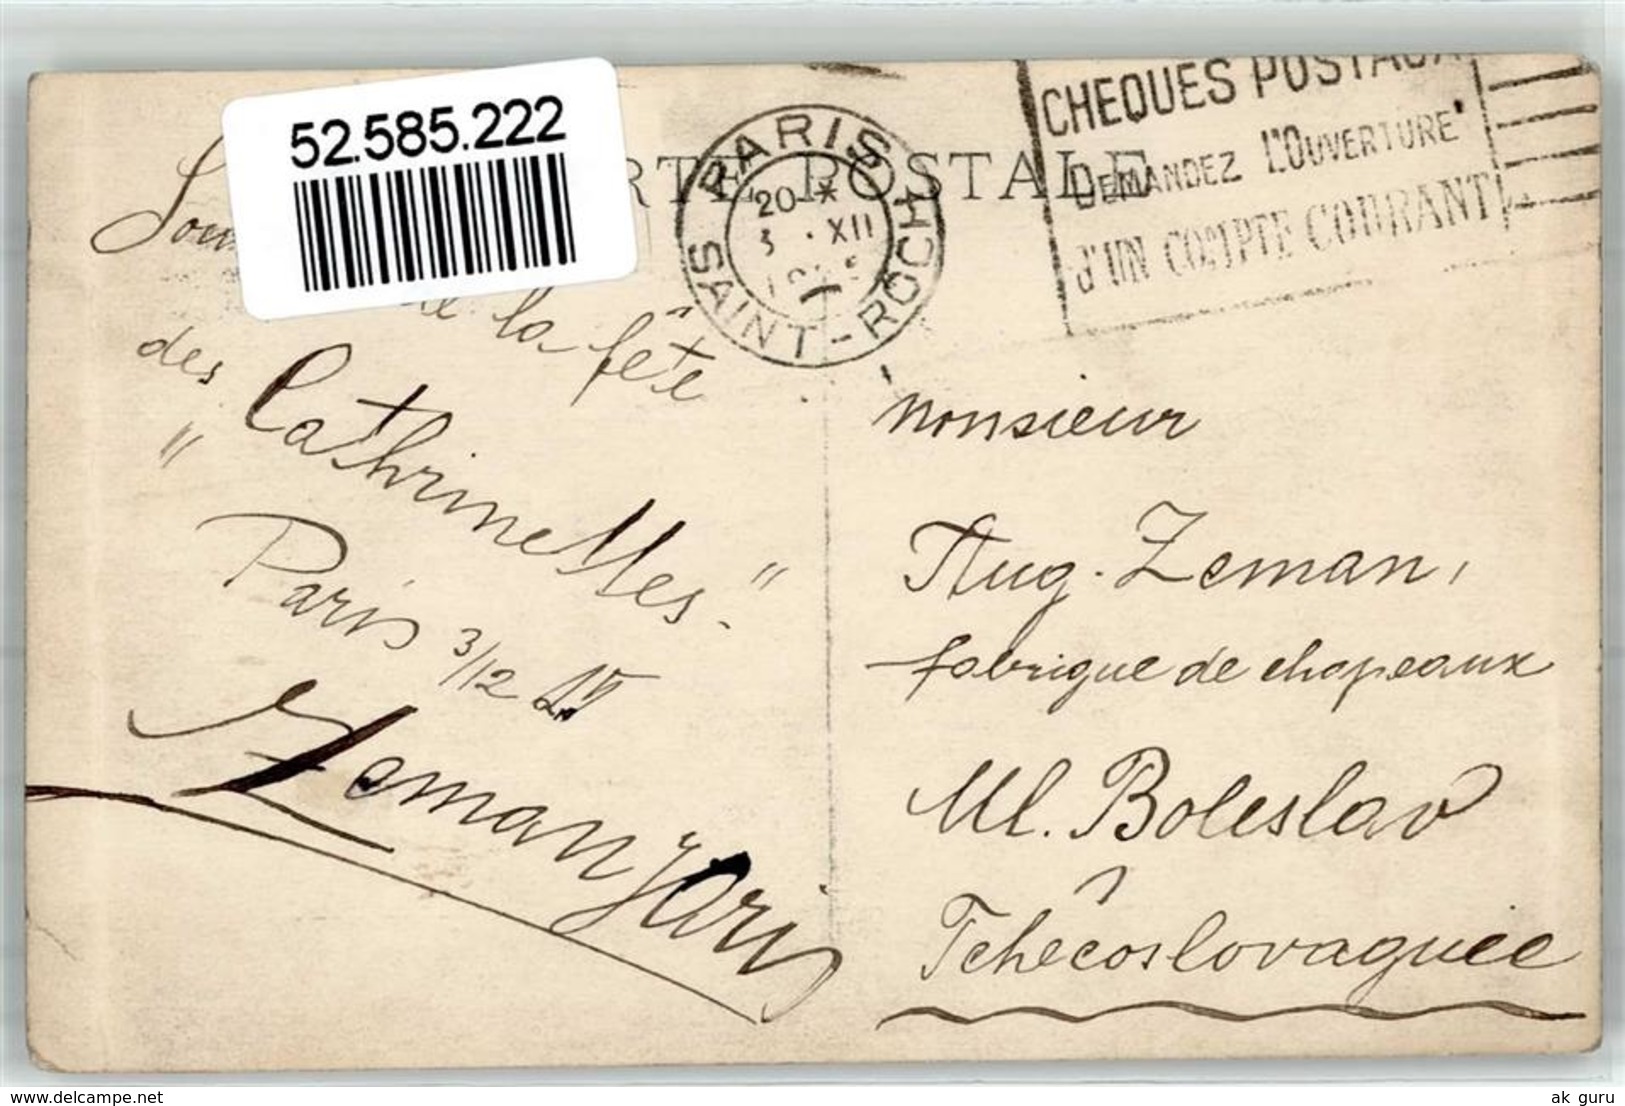 52.585.222
RTE POSTALE
PARIS
SAINT-ROCH
20 *
3 . XII
CHEQUES POSTAUX
DEMANDEZ L'OUVERTURE
D'UN COMPTE COURANT
la fête
des
"Cathrinettes."
Paris 3/12
Zeman
monsieur
Aug. Zeman,
fabrique de chapeaux
Ml. Boleslav
Tchécoslovaquiee
www.delcampe.net
ak guru